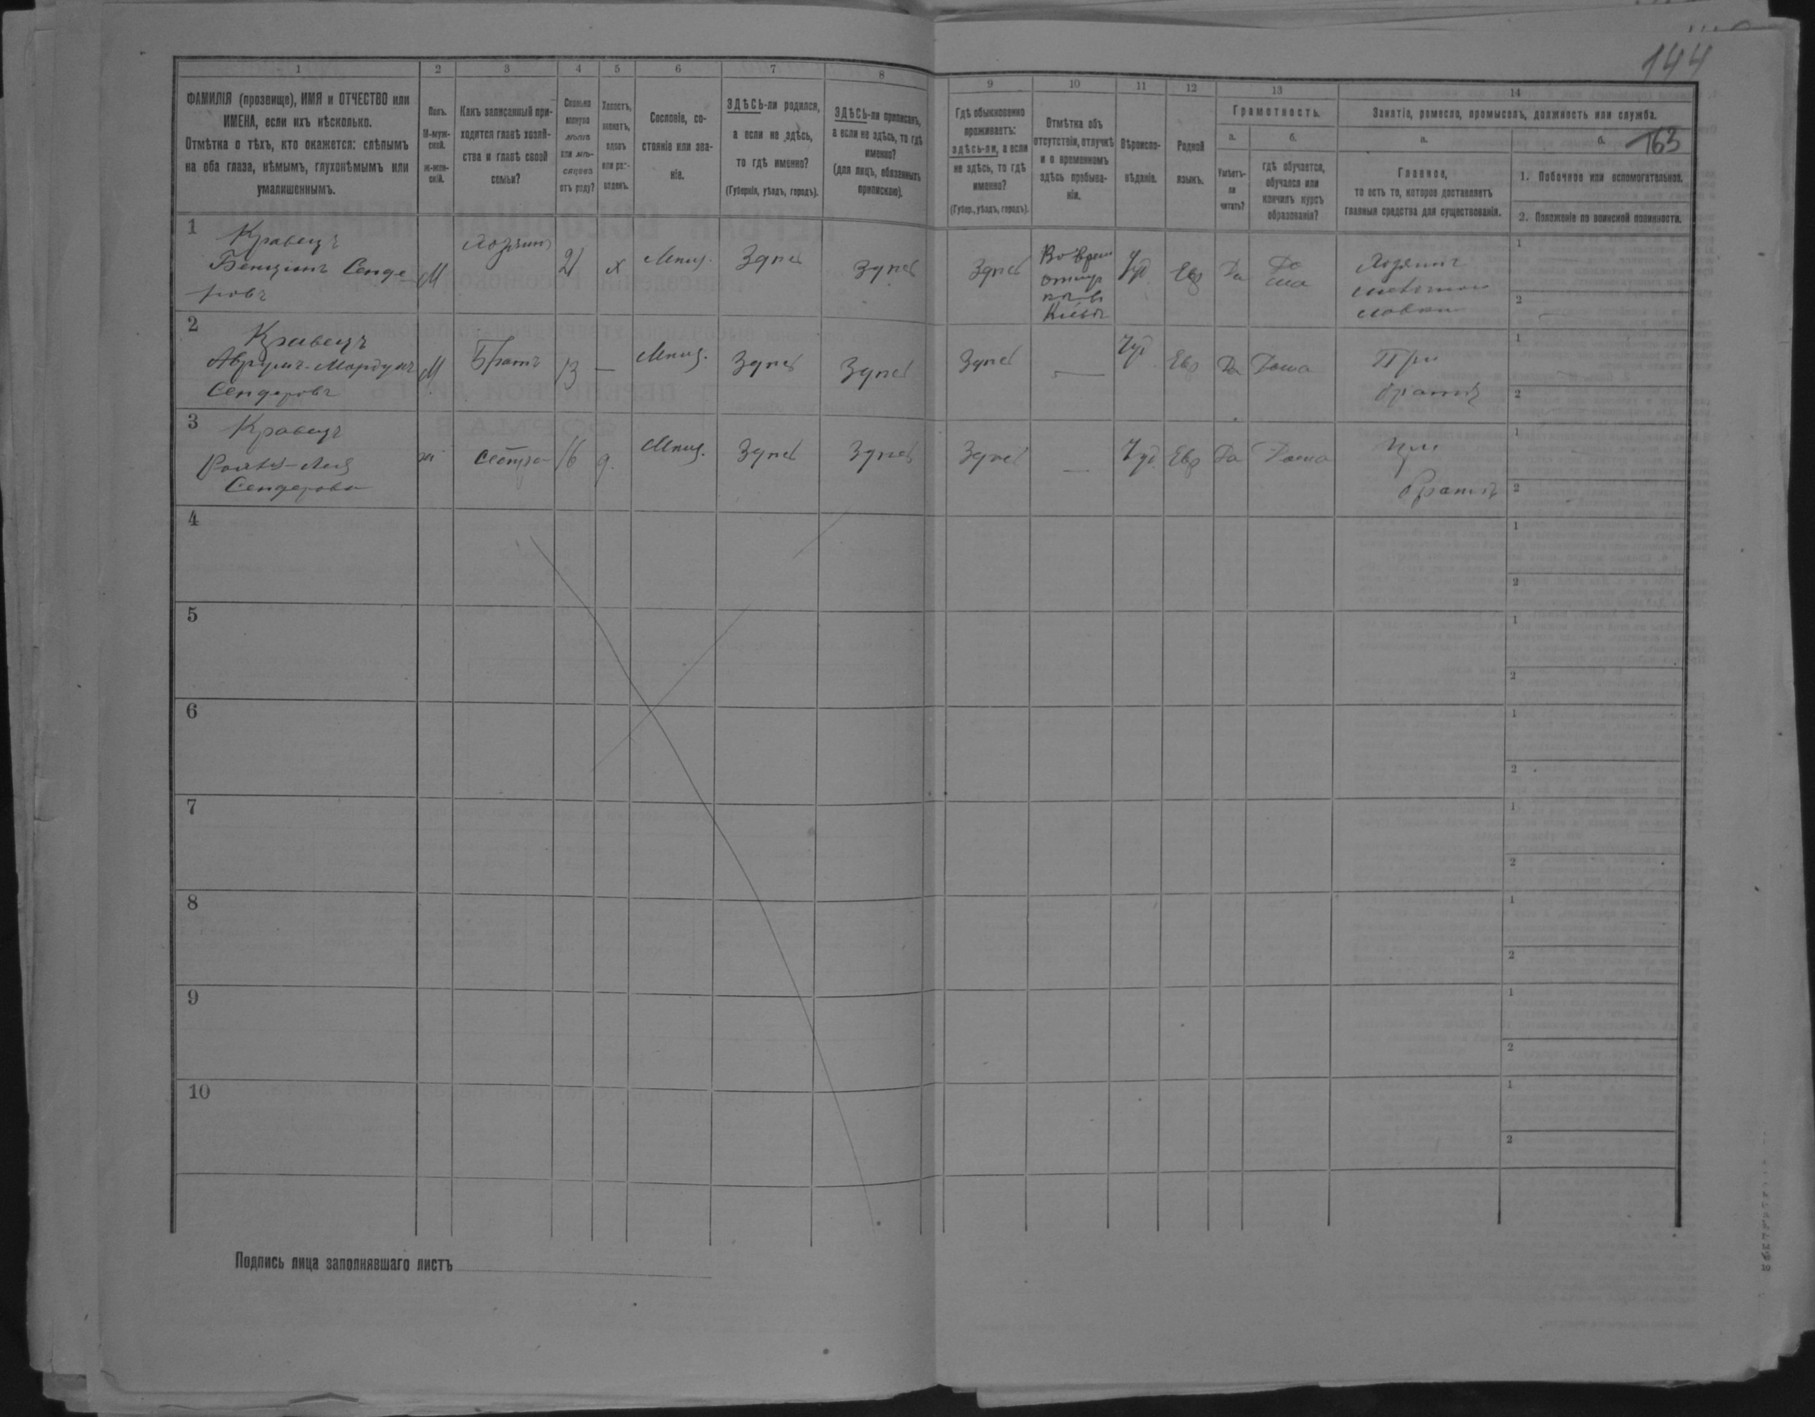 144
163
1 2 3 4 5 6 7 8 9 10 11 12 13 14
ФАМИЛІЯ (прозвище), ИМЯ и ОТЧЕСТВО или
ИМЕНА, если ихъ нѣсколько.
Отмѣтка о тѣхъ, кто окажется: слѣпымъ
на оба глаза, нѣмымъ, глухонѣмымъ или
умалишеннымъ.
Полъ.
М-муж-
ской.
ж-жен-
скій.
Какъ записанный при-
ходится главѣ хозяй-
ства и главѣ своей
семьи?
Сколько
минуло
лѣтъ
или мѣ-
сяцевъ
отъ роду?
Холостъ,
женатъ,
вдовъ
или раз-
веденъ.
Сословіе, со-
стояніе или зва-
ніе.
ЗДѢСЬ-ли родился,
а если не здѣсь,
то гдѣ именно?
(Губернія, уѣздъ, городъ).
ЗДѢСЬ-ли приписанъ,
а если не здѣсь, то гдѣ
именно?
(для лицъ, обязанныхъ
припискою).
Гдѣ обыкновенно
проживаетъ:
здѣсь-ли, а если
не здѣсь, то гдѣ
именно?
(Губер., уѣздъ, городъ).
Отмѣтка объ
отсутствіи, отлучкѣ
и о временномъ
здѣсь пребыва-
ніи.
Вѣроиспо-
вѣданіе.
Родной
языкъ.
Грамотность.
а.
Умѣетъ-
ли
читать?
б.
гдѣ обучается,
обучался или
кончилъ курсъ
образованія?
Занятіе, ремесло, промыселъ, должность или служба.
а.
Главное,
то есть то, которое доставляетъ
главныя средства для существованія.
б.
1. Побочное или вспомогательное.
2. Положеніе по воинской повинности.
1
Кравецъ
Бенціонъ Сенде
ровъ
М
хозяинъ
21
х
Мѣщ.
Здѣсь
Здѣсь
Здѣсь
Во врем
отлуч
въ
Кіевѣ
Іуд
Евр
Да
До
ма
Хозяинъ
лавки
1
2
2
Кравецъ
Аврумъ-Мордухъ
Сендеровъ
М
Братъ
13
—
Мѣщ.
Здѣсь
Здѣсь
Здѣсь
—
Іуд
Евр
Да
Дома
При
братѣ
1
2
3
Кравецъ
Сендерова
ж
сестра
16
д.
Мѣщ.
Здѣсь
Здѣсь
Здѣсь
—
Іуд
Евр
Да
Дома
При
братѣ
1
2
4
1
2
5
1
2
6
1
2
7
1
2
8
1
2
9
1
2
10
1
2
Подпись лица заполнявшаго листъ